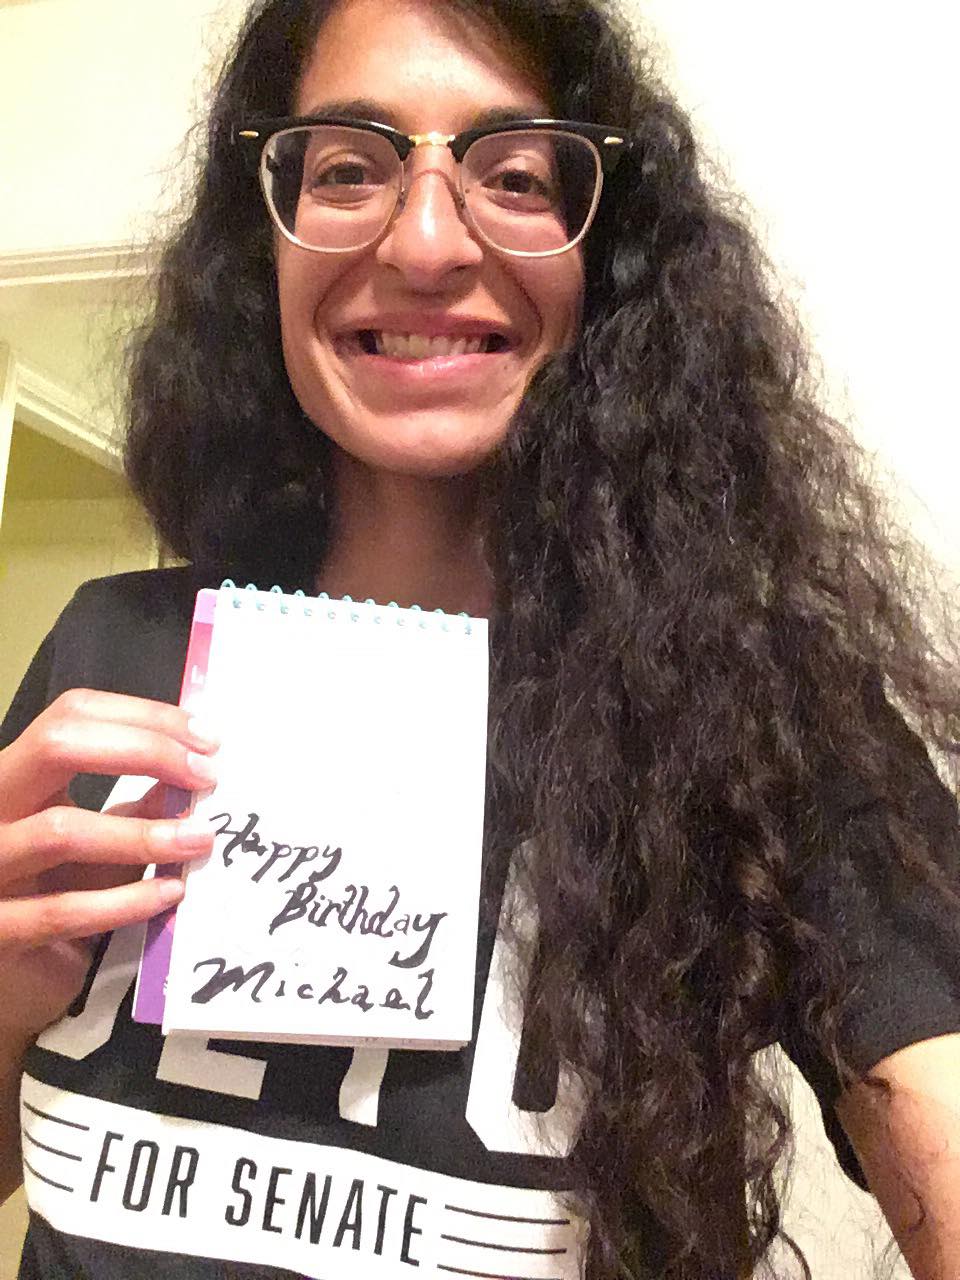 Happy
Birthday
Michael
FOR SENATE